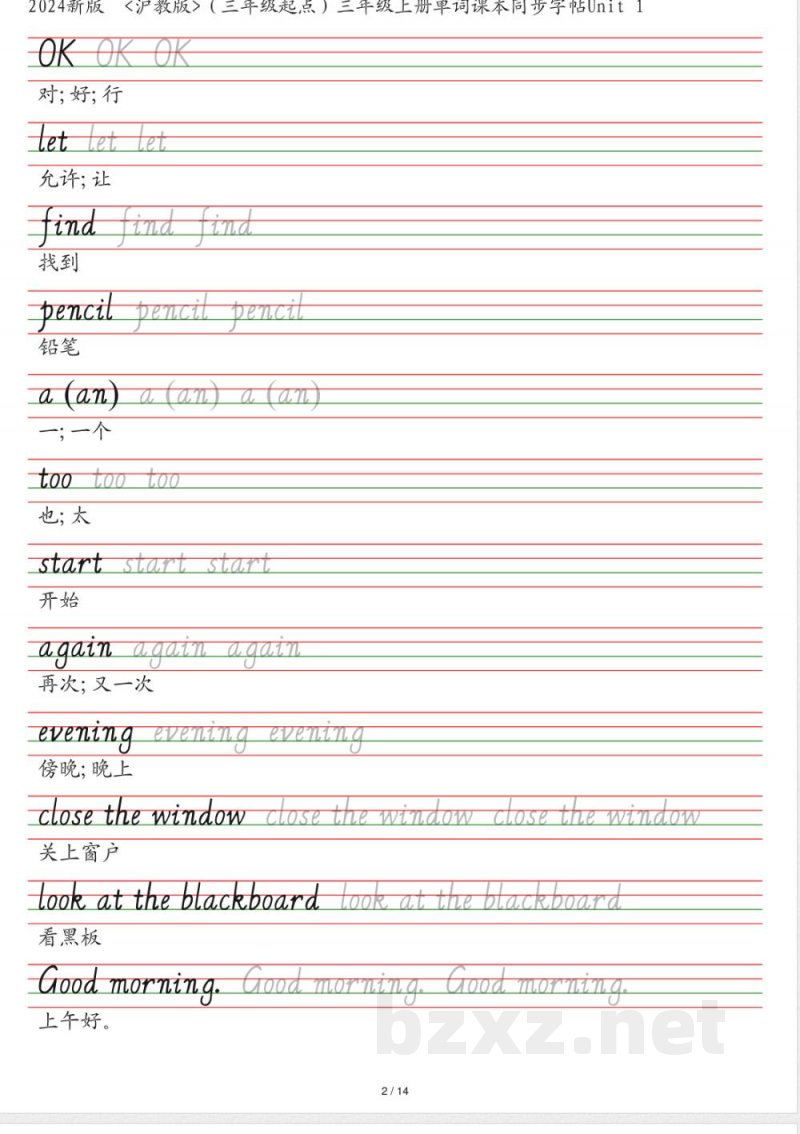 2024新版 <沪教版>(三年级起点)三年级上册单词课本同步字帖Unit 1
OK OK OK
对; 好; 行
let let let
允许; 让
find find find
找到
pencil pencil pencil
铅笔
a (an) a (an) a (an)
一; 一个
too too too
也; 太
start start start
开始
again again again
再次; 又一次
evening evening evening
傍晚; 晚上
close the window close the window close the window
关上窗户
look at the blackboard look at the blackboard
看黑板
Good morning. Good morning. Good morning.
上午好。
bzxz.net
2 / 14